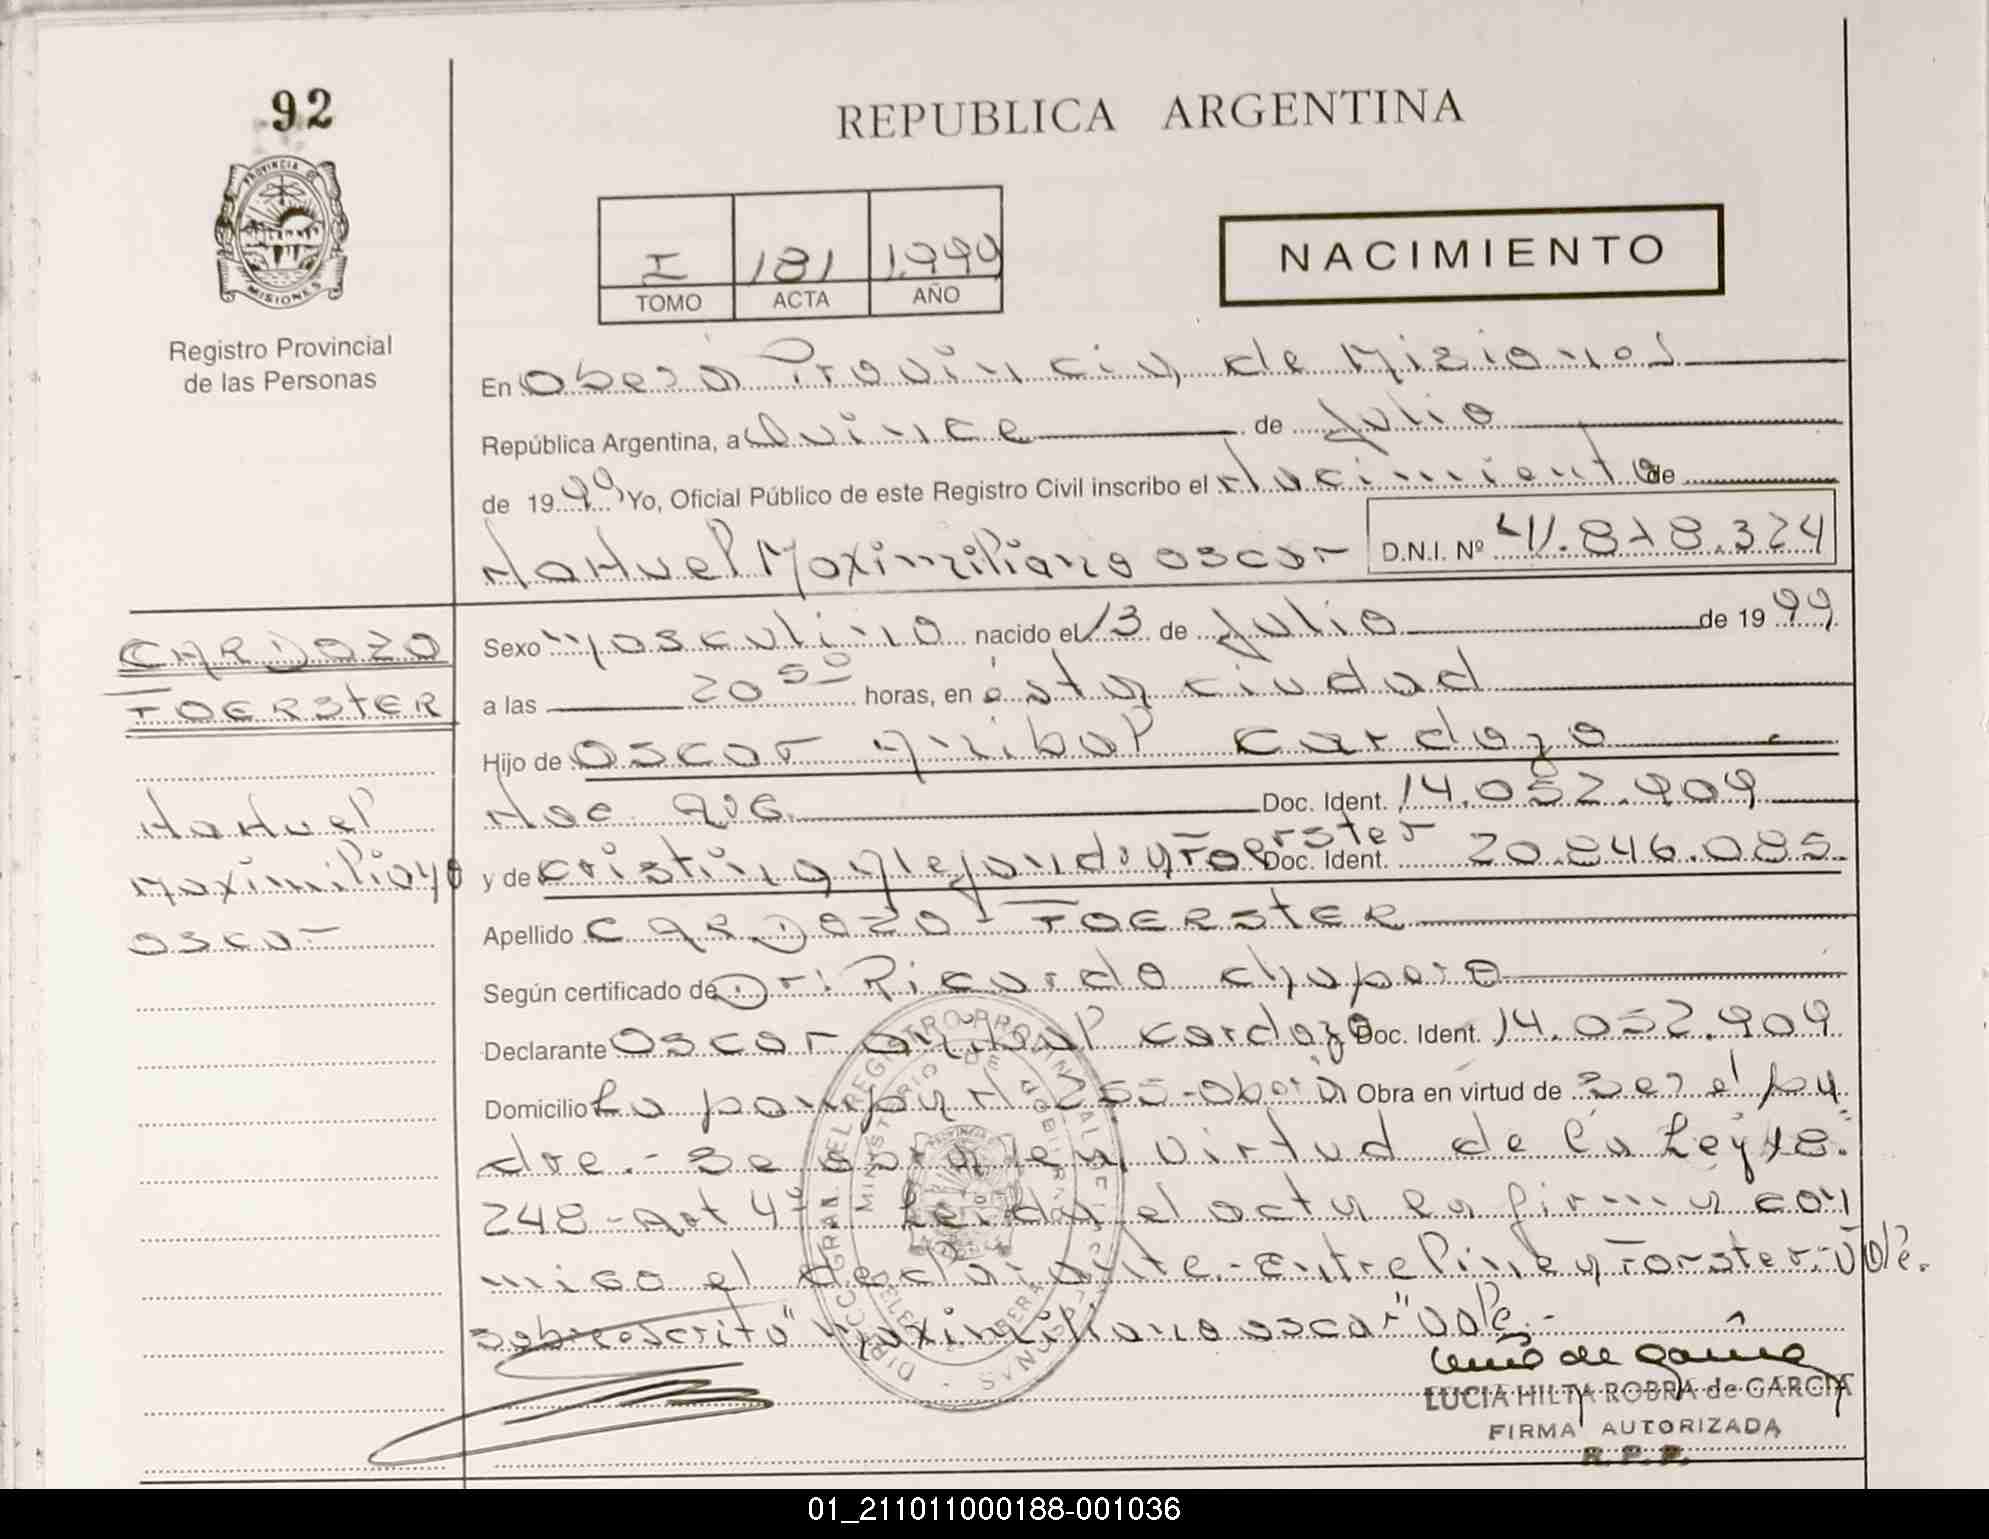 92
REPUBLICA ARGENTINA
PROVINCIA DE
MISIONES
Registro Provincial
de las Personas
I 181 1.999
TOMO ACTA AÑO
NACIMIENTO
En Oberá Provincia de Misiones
República Argentina, a Quince de Julio
de 1999 Yo, Oficial Público de este Registro Civil inscribo el Nacimiento de
Nahuel Maximiliano Oscar D.N.I. Nº 41.878.324
CARDOZO
FOERSTER
Nahuel
Maximiliano
Oscar
Sexo Masculino nacido el 13 de Julio de 1999
a las 20 50 horas, en ésta ciudad
Hijo de Oscar Anibal Cardozo
Nac. arg. Doc. Ident. 14.052.909
y de Cristina Alejandra Foerster Doc. Ident. 20.846.085.
Apellido CARDOZO - FOERSTER
Según certificado de Dr: Ricardo
Declarante Oscar Anibal Cardozo Doc. Ident. 14.052.909
Domicilio La pampa Nº 255-Oberá Obra en virtud de ser el pa
dre.- Se obra en virtud de la Ley 18.
248-art 4º Leida el acta la firma con
migo el declarante.-Entrelinea Forster:-Vale.
sobreescrito "Maximiliano Oscar" Vale.-
DIRECC. GRAL. DEL REGISTRO PROVINCIAL DE LAS PERSONAS
MINISTERIO DE GOBIERNO
OBERA
LUCIA HILTA ROBRA de GARCIA
FIRMA AUTORIZADA
R. P. P.
01_211011000188-001036